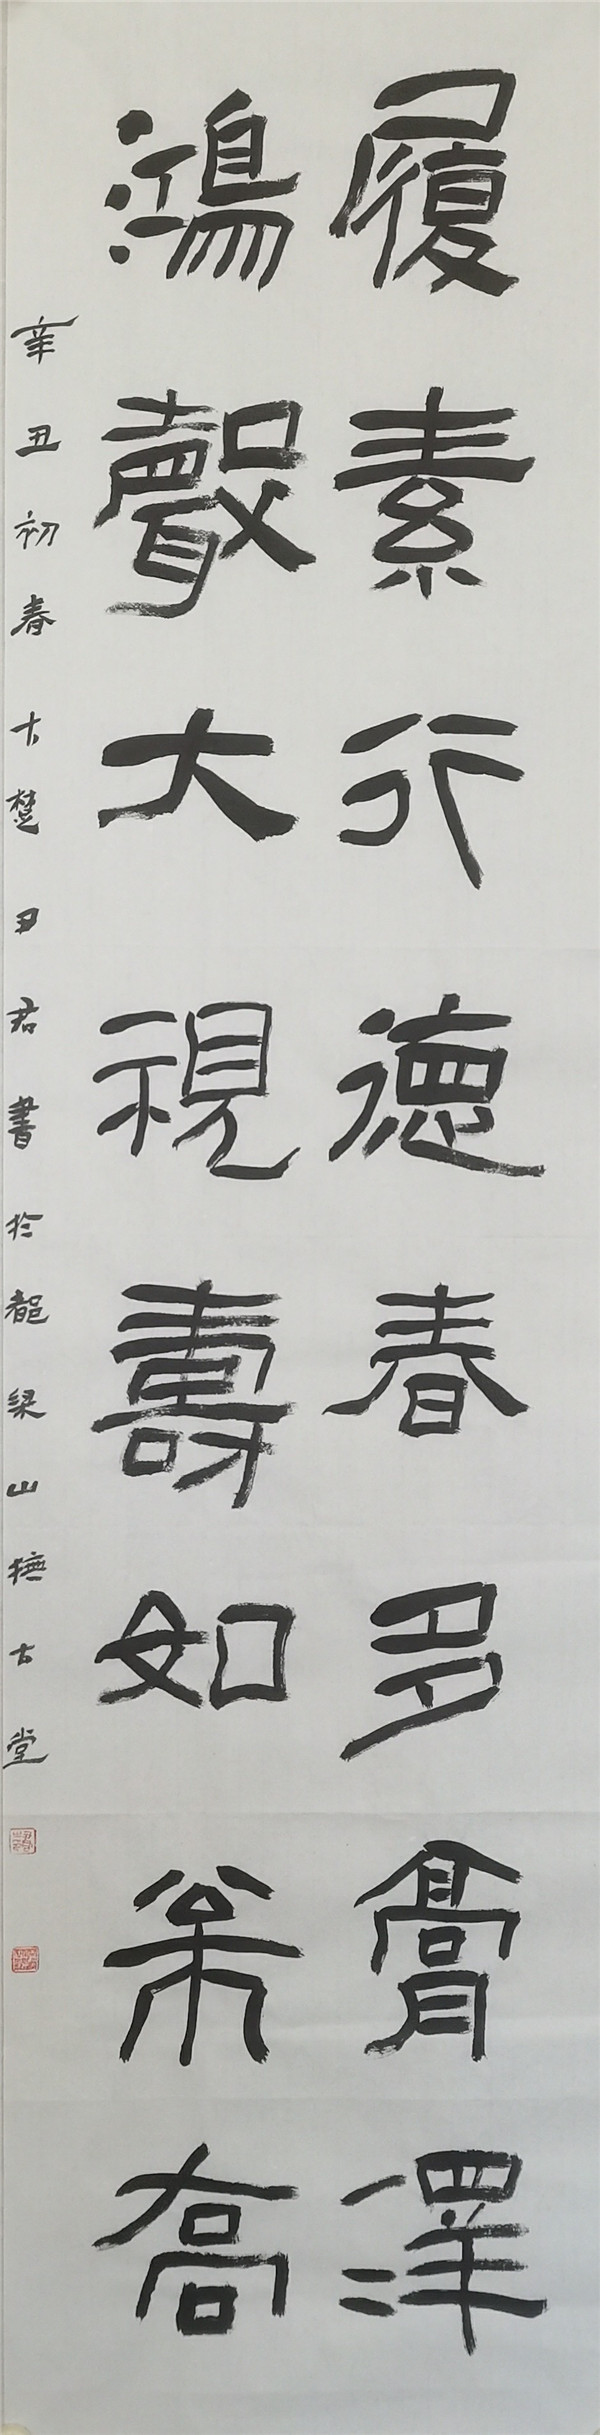 履素行德春多膏澤
鴻聲大視壽如嵩高
辛丑初春 古楚尹君書於龍梁山撫古堂